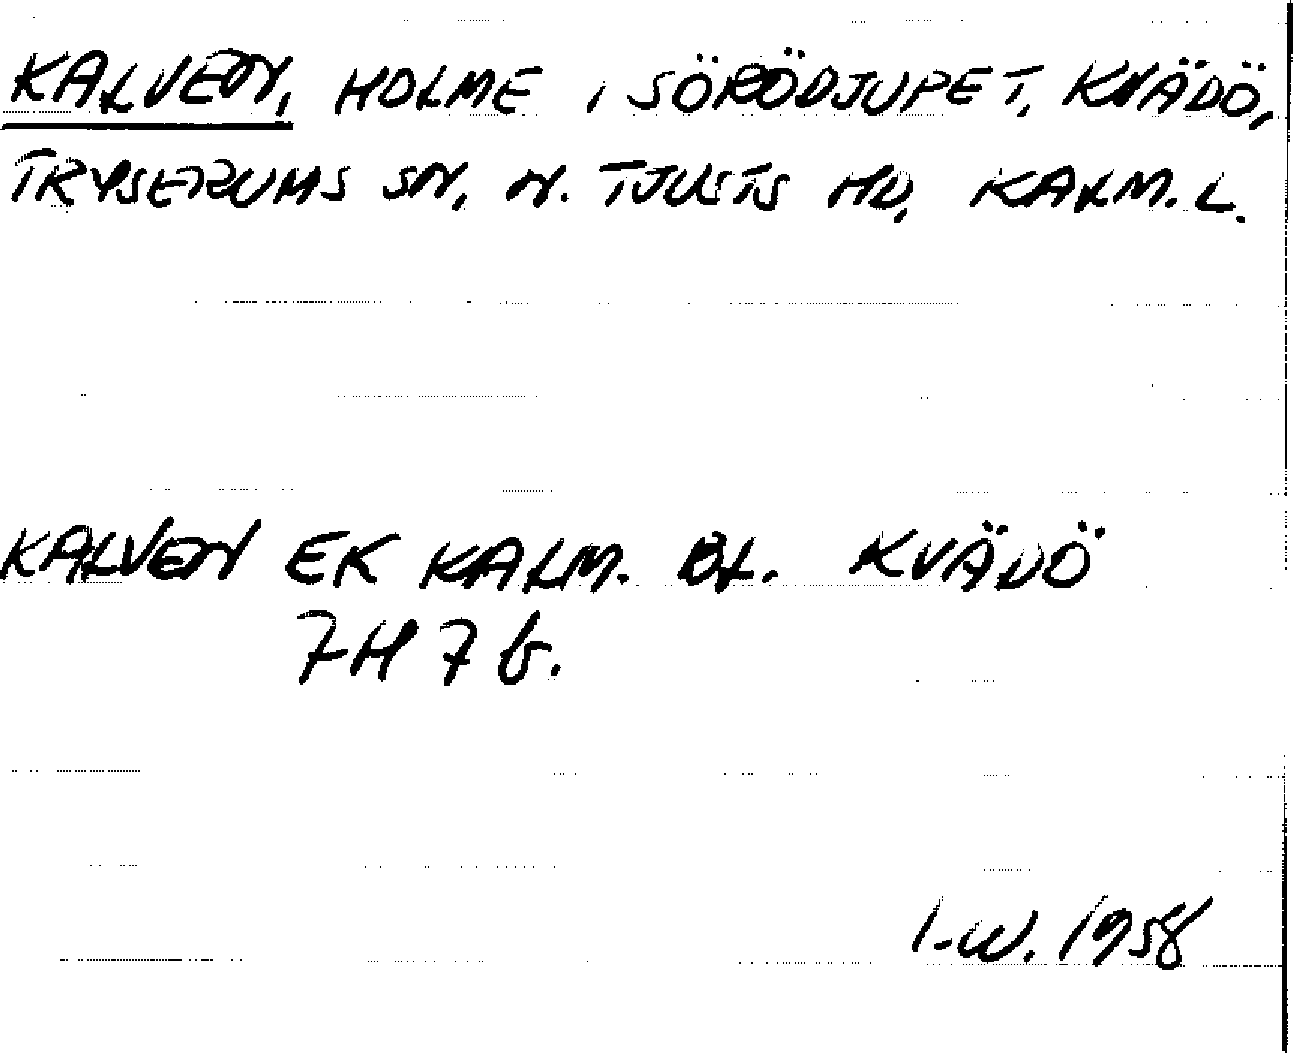 KALVEN, HOLME I SÖRÖDJUPET, KVÄDÖ,
TRYSERUMS SN, N. TJUSTS HD, KALM. L.
KALVEN EK KALM. BL. KVÄDÖ
7H 7b.
I-W. 1958